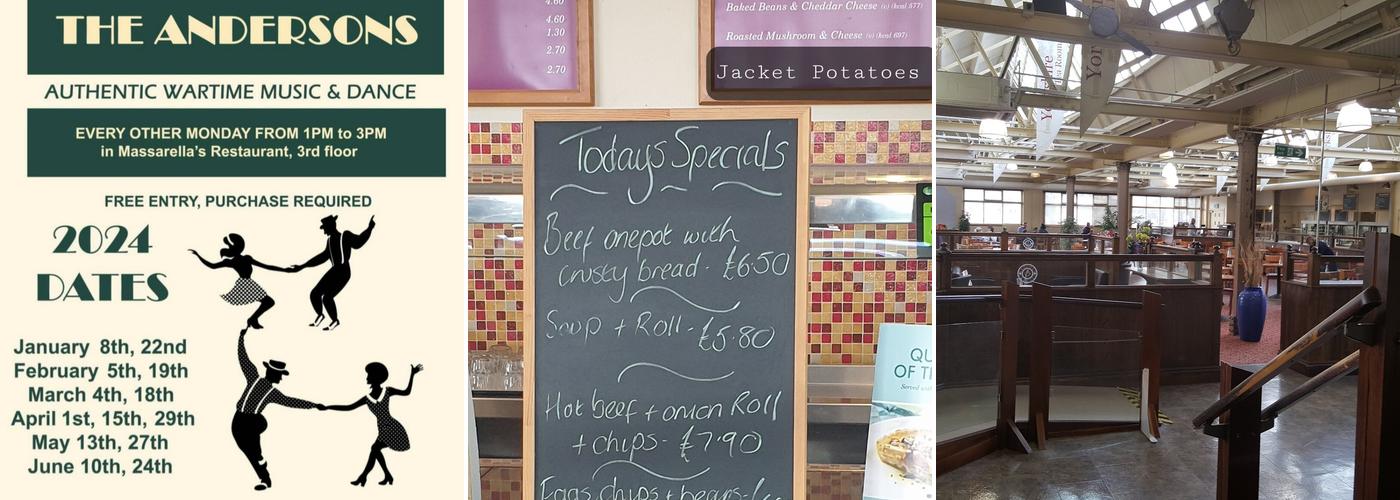 THE ANDERSONS
AUTHENTIC WARTIME MUSIC & DANCE
EVERY OTHER MONDAY FROM 1PM to 3PM
in Massarella's Restaurant, 3rd floor
FREE ENTRY, PURCHASE REQUIRED
2024
DATES
January 8th, 22nd
February 5th, 19th
March 4th, 18th
April 1st, 15th, 29th
May 13th, 27th
June 10th, 24th
4.60
4.60
1.30
2.70
2.70
Baked Beans & Cheddar Cheese (v) (kcal 877)
Roasted Mushroom & Cheese (v) (kcal 697)
Jacket Potatoes
Todays Specials
Beef onepot with
crusty bread - £6.50
Soup + Roll - £5.80
Hot beef + onion Roll
+ chips - £7.90
Eggs, chips + beans -
QU
OF T
Served
Yor